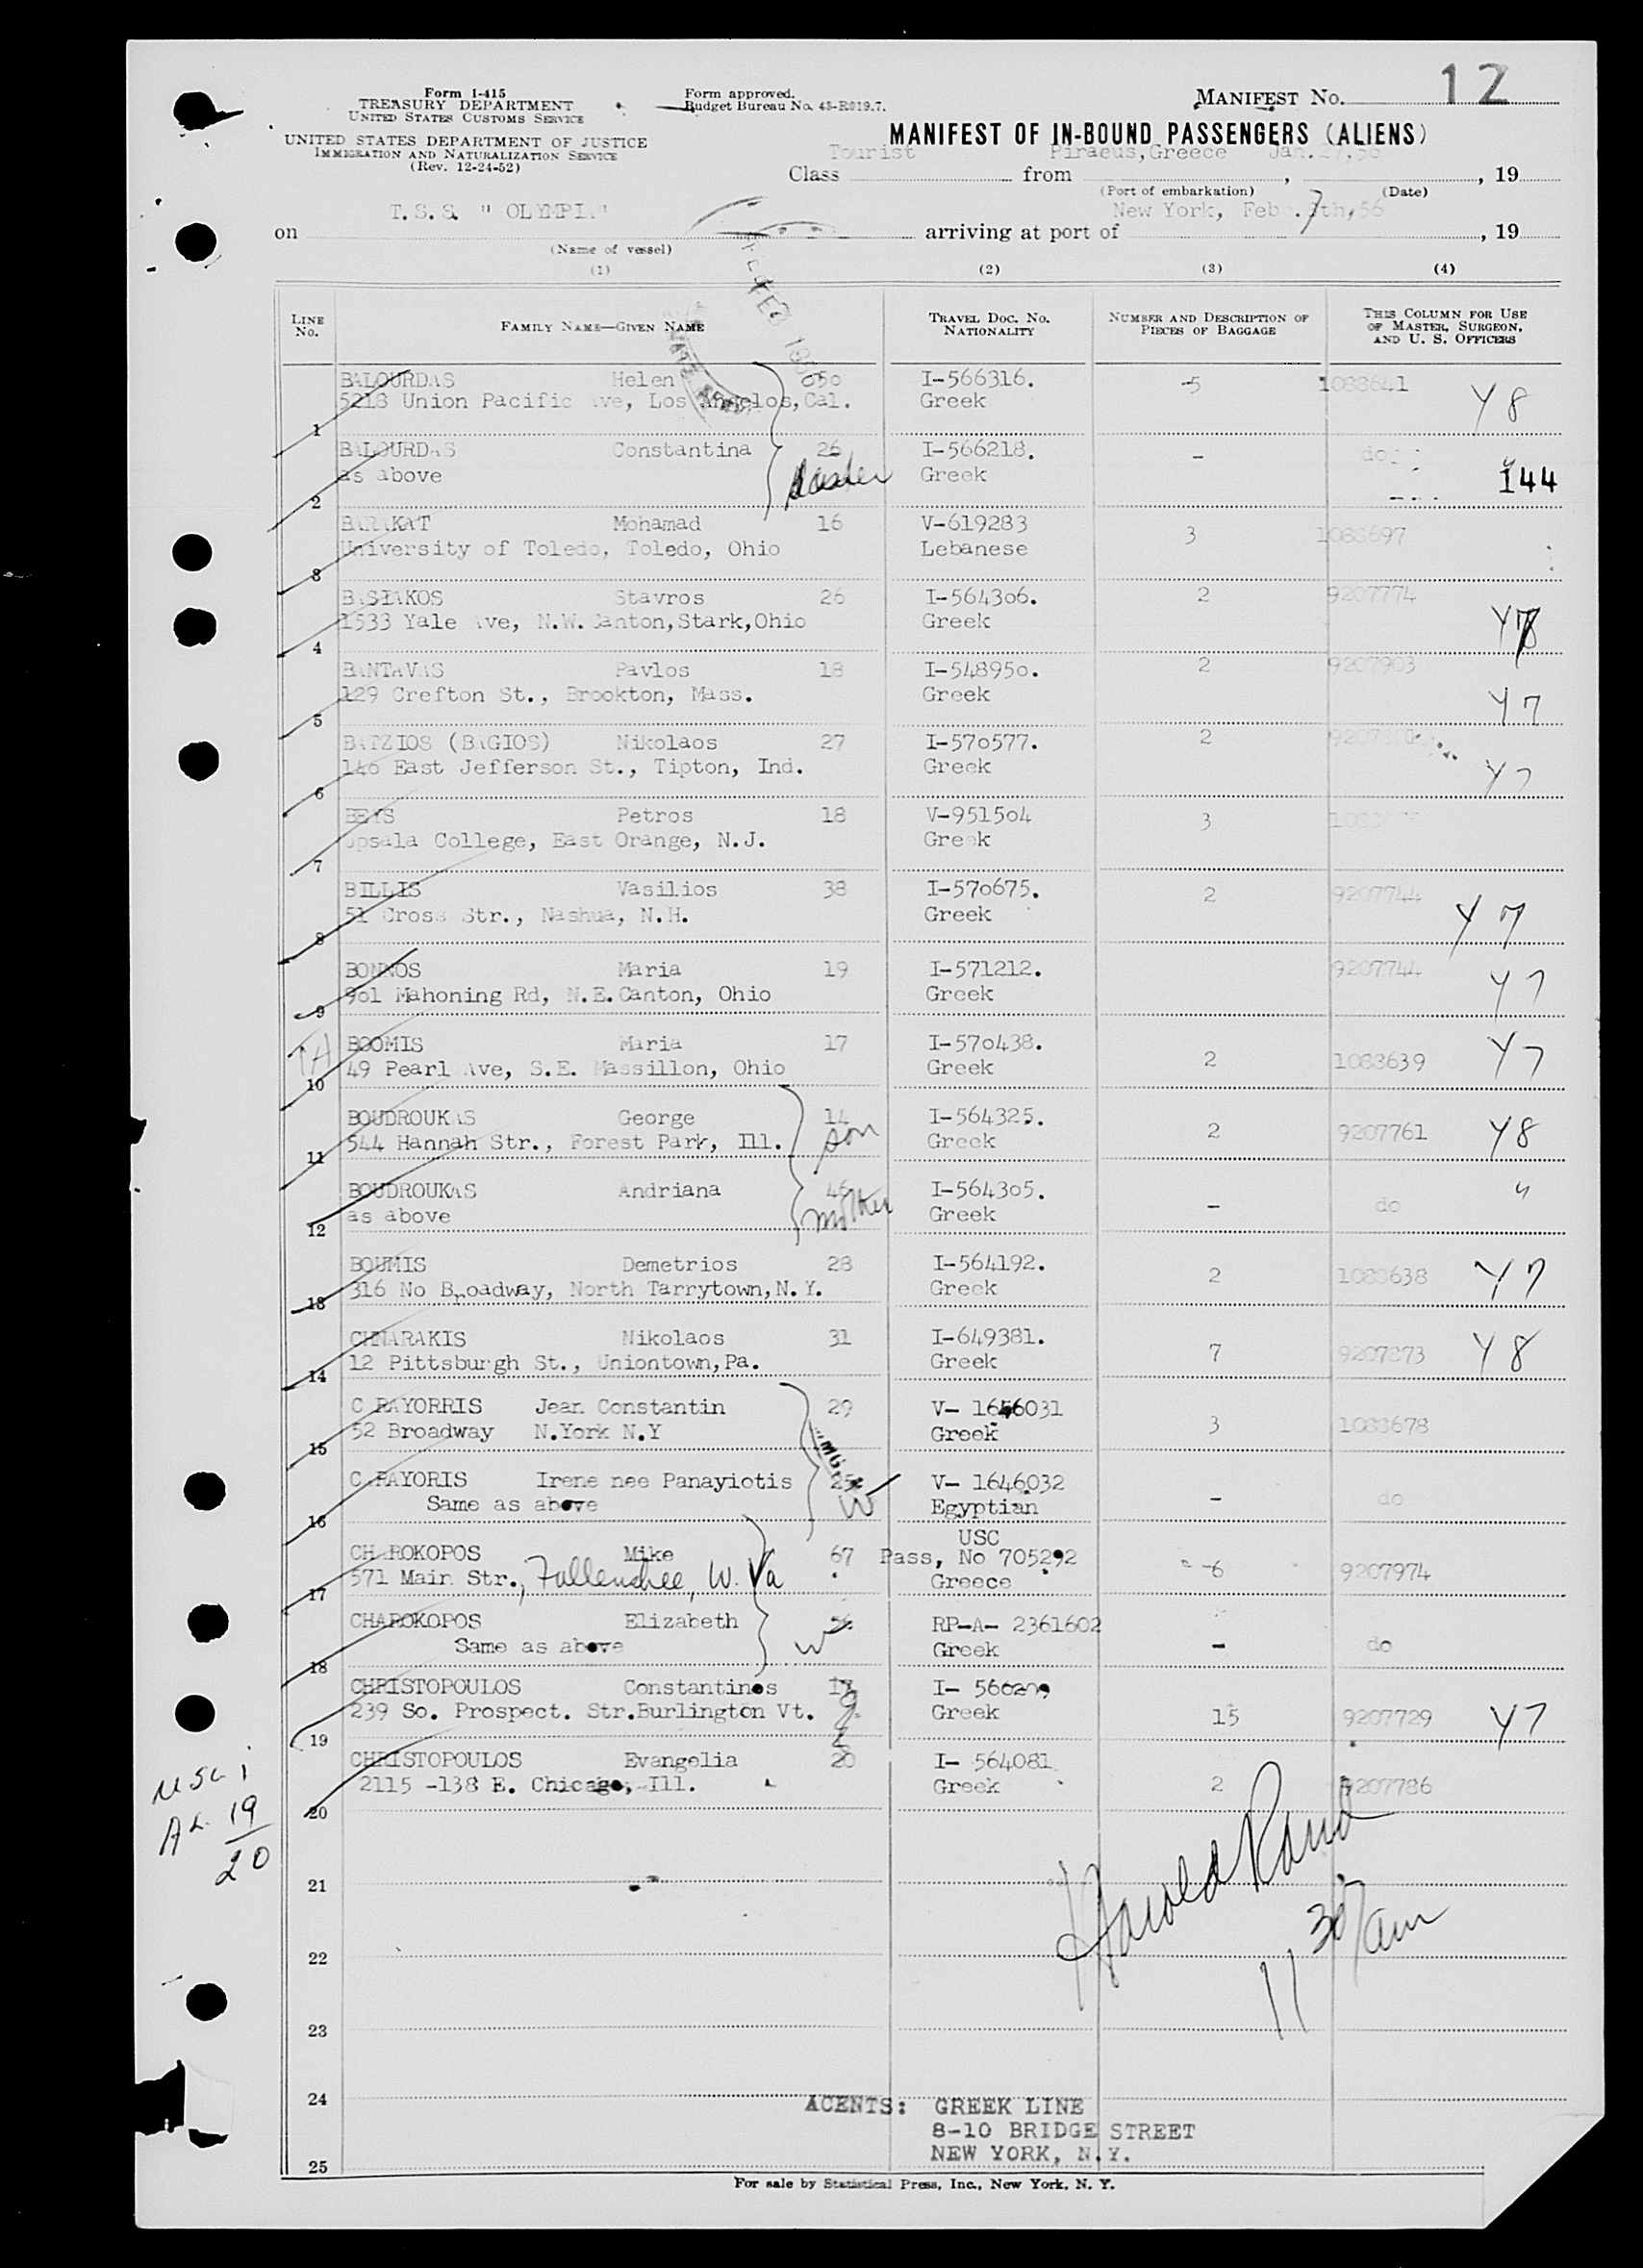 Form I-415
TREASURY DEPARTMENT
UNITED STATES CUSTOMS SERVICE
UNITED STATES DEPARTMENT OF JUSTICE
IMMIGRATION AND NATURALIZATION SERVICE
(Rev. 12-24-52)
Form approved.
Budget Bureau No. 43-R019.7.
MANIFEST No. 12
MANIFEST OF IN-BOUND PASSENGERS (ALIENS)
Class Tourist from Piraeus, Greece Jan. , 19
(Port of embarkation) (Date)
on T.S.S. " OLYMPIA" arriving at port of New York, Feb. 7th, 56, 19
(Name of vessel)
(1) (2) (3) (4)
LINE No. FAMILY NAME—GIVEN NAME TRAVEL DOC. NO. NATIONALITY NUMBER AND DESCRIPTION OF PIECES OF BAGGAGE THIS COLUMN FOR USE OF MASTER, SURGEON, AND U. S. OFFICERS
BALOURDAS Helen I-566316. 5 1083641 Y 8
1 5218 Union Pacific Ave, Los Angelos, Cal. Greek
BALOURDAS Constantina 26 I-566218. - do
2 as above Greek 144
BARAKAT Mohamad 16 V-619283 3 1083697
3 University of Toledo, Toledo, Ohio Lebanese
BASIAKOS Stavros 26 I-564306. 2 9207774
4 1533 Yale Ave, N.W. Canton, Stark, Ohio Greek Y 8
BANTAVAS Pavlos 18 I-548950. 2 9207903
5 129 Crefton St., Brookton, Mass. Greek Y 7
BATZIOS (BAGIOS) Nikolaos 27 I-570577. 2
6 146 East Jefferson St., Tipton, Ind. Greek Y 7
BEYS Petros 18 V-951504 3
7 Upsala College, East Orange, N.J. Greek
BILLIS Vasilios 38 I-570675. 2 9207744
8 51 Cross Str., Nashua, N.H. Greek Y 7
BONNOS Maria 19 I-571212. 9207744
9 901 Mahoning Rd, N.E. Canton, Ohio Greek Y 7
BOOMIS Maria 17 I-570438. 2 1083639 Y 7
10 49 Pearl Ave, S.E. Massillon, Ohio Greek
BOUDROUKAS George 14 I-564325. 2 9207761 Y 8
11 544 Hannah Str., Forest Park, Ill. son Greek
BOUDROUKAS Andriana 46 I-564305. - do "
12 as above mother Greek
BOUMIS Demetrios 28 I-564192. 2 1083638 Y 7
13 316 No Broadway, North Tarrytown, N.Y. Greek
CHNARAKIS Nikolaos 31 I-649381. 7 9207873 Y 8
14 12 Pittsburgh St., Uniontown, Pa. Greek
CARAYORRIS Jean Constantin 29 V- 1646031 3 1083678
15 52 Broadway N.York N.Y Greek
CARAYORIS Irene nee Panayiotis 25 V- 1646032 - do
16 Same as above W Egyptian
USC
CHAROKOPOS Mike 67 Pass, No 705292 6 9207974
17 571 Main Str., Follenshee, W. Va Greece
CHAROKOPOS Elizabeth RP-A- 2361602 - do
18 Same as above W Greek
CHRISTOPOULOS Constantinos 17 I- 560209 15 9207729 Y 7
19 239 So. Prospect. Str. Burlington Vt. Greek
CHRISTOPOULOS Evangelia 20 I- 564081 2 9207786
20 2115 -138 E. Chicago, Ill. Greek
USC 1
AL 19
20
Harold Rand
11 30/am
21
22
23
24
25
AGENTS: GREEK LINE
8-10 BRIDGE STREET
NEW YORK, N.Y.
For sale by Statistical Press, Inc., New York, N. Y.